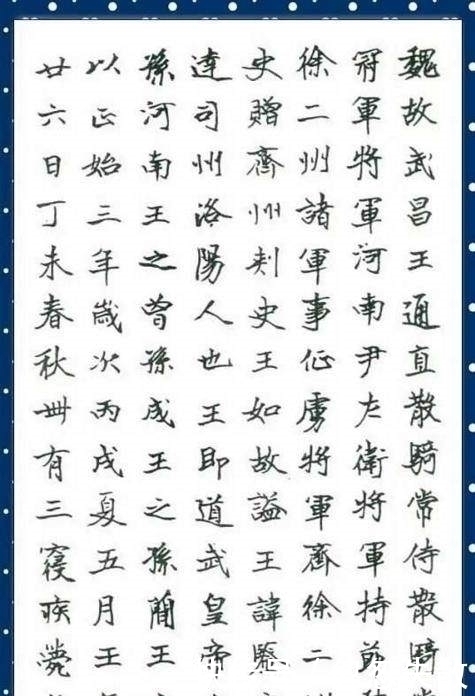 魏故武昌王通直散騎常侍散騎
冠軍將軍河南尹左衛將軍持節
徐二州諸軍事征虜將軍齊徐二
史贈齊州刺史王如故謚王諱
達司州洛陽人也王即道武皇帝
孫河南王之曾孫成王之孫簡王
以正始三年歲次丙戌夏五月王
廿六日丁未春秋卌有三寑疾薨